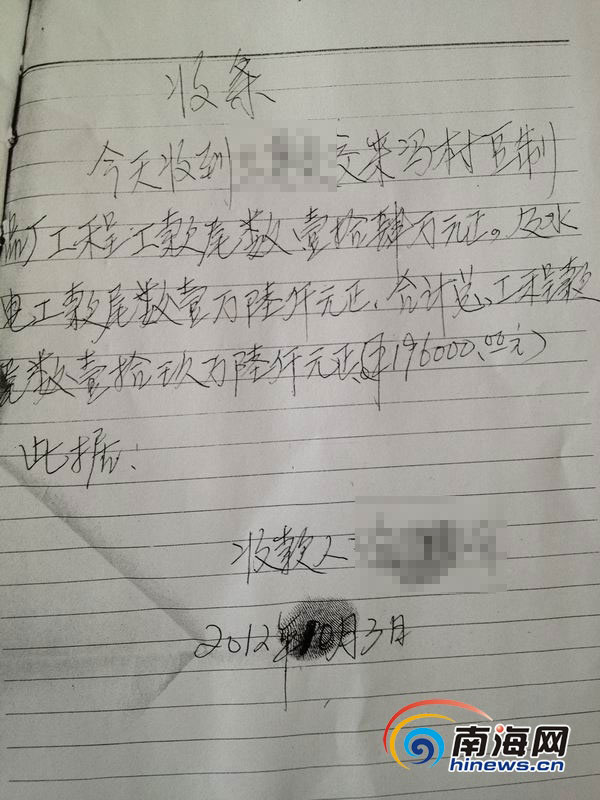 收条
今天收到 交来冯村 制
工程工款尾数壹拾捌万元正。及水
电工款尾数壹万陆仟元正、合计总工程款
尾数壹拾玖万陆仟元正(即196000.00元)
此据.
收款人
2012年10月3日
南海网
hinews.cn